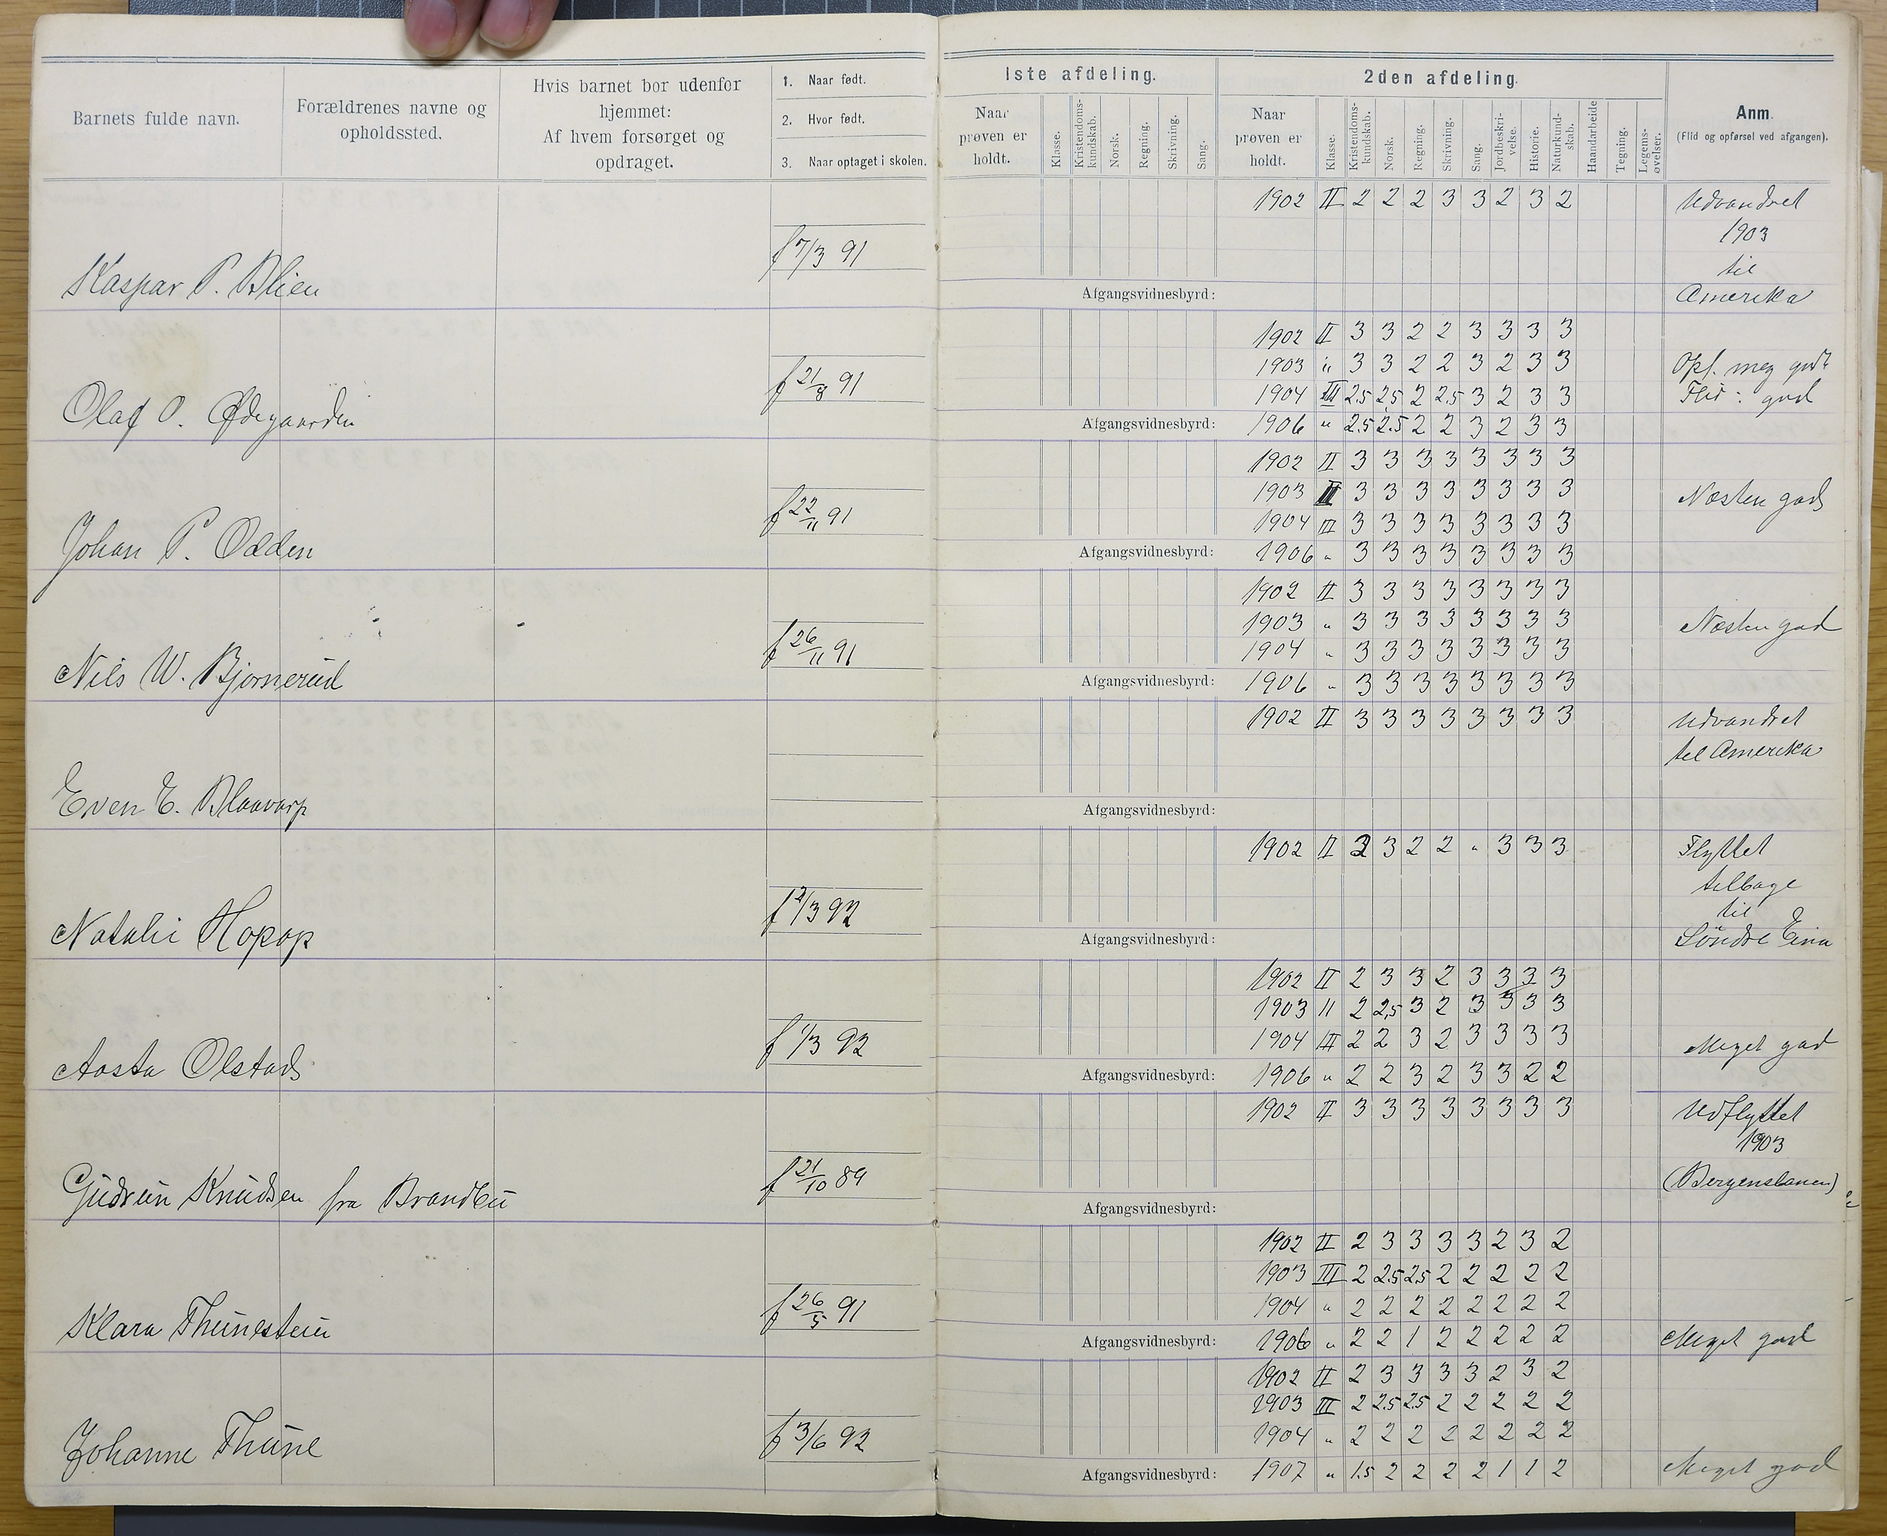 Barnets fulde navn.
Forældrenes navne og
opholdssted.
Hvis barnet bor udenfor
hjemmet:
Af hvem forsørget og
opdraget.
1. Naar født.
2. Hvor født.
3. Naar optaget i skolen.
1ste afdeling.
Naar
prøven er
holdt.
Klasse.
Kristendoms-
kundskab.
Norsk.
Regning.
Skrivning.
Sang.
2den afdeling.
Naar
prøven er
holdt.
Klasse.
Kristendoms-
kundskab.
Norsk.
Regning.
Skrivning.
Sang.
Jordbeskri-
velse.
Historie.
Naturkund-
skab.
Haandarbeide
Tegning.
Legems-
øvelser.
Anm.
(Flid og opførsel ved afgangen).
Kaspar P. Blien
f 7/3 91
1902 II 2 2 2 3 3 2 3 2
Udvandret
1903
til
Amerika
Afgangsvidnesbyrd:
Olaf O. Ødegaarden
f 21/8 91
1902 II 3 3 2 2 3 3 3 3
1903 " 3 3 2 2 3 2 3 3
1904 III 2.5 2.5 2 2.5 3 2 3 3
Afgangsvidnesbyrd: 1906 " 2.5 2.5 2 2 3 2 3 3
Opf. meg godt
Flid: god
Johan P. Odden
f 22/11 91
1902 II 3 3 3 3 3 3 3 3
1903 II 3 3 3 3 3 3 3 3
1904 III 3 3 3 3 3 3 3 3
Afgangsvidnesbyrd: 1906 " 3 3 3 3 3 3 3 3
Næsten god
Nils W. Bjørnerud
f 26/11 91
1902 II 3 3 3 3 3 3 3 3
1903 " 3 3 3 3 3 3 3 3
1904 " 3 3 3 3 3 3 3 3
Afgangsvidnesbyrd: 1906 " 3 3 3 3 3 3 3 3
Næsten god
Even E. Blaavarp
1902 II 3 3 3 3 3 3 3 3
Udvandret
til Amerika
Afgangsvidnesbyrd:
Natalie Hopop
f 12/3 92
1902 II 3 3 2 2 " 3 3 3
Flyttet
tilbage
til
Søndre Eina
Afgangsvidnesbyrd:
Aasta Olstad
f 1/3 92
1902 II 2 3 3 2 3 3 3 3
1903 II 2 2,5 3 2 3 3 3 3
1904 III 2 2 3 2 3 3 3 3
Afgangsvidnesbyrd: 1906 " 2 2 3 2 3 3 2 2
Meget god
Gudrun Knudsen fra Brandbu
f 21/10 89
1902 II 3 3 3 3 3 3 3 3
Udflyttet
1903
(Bergensbanen)
Afgangsvidnesbyrd:
Klara Thunestuen
f 26/5 91
1902 II 2 3 3 3 3 2 3 2
1903 III 2 2.5 2.5 2 2 2 2 2
1904 " 2 2 2 2 2 2 2 2
Afgangsvidnesbyrd: 1906 " 2 2 1 2 2 2 2 2
Meget god
Johanne Thune
f 3/6 92
1902 II 2 3 3 3 3 2 3 2
1903 III 2 2.5 2.5 2 2 2 2 2
1904 " 2 2 2 2 2 2 2 2
Afgangsvidnesbyrd: 1907 " 1.5 2 2 2 2 1 1 2
Meget god